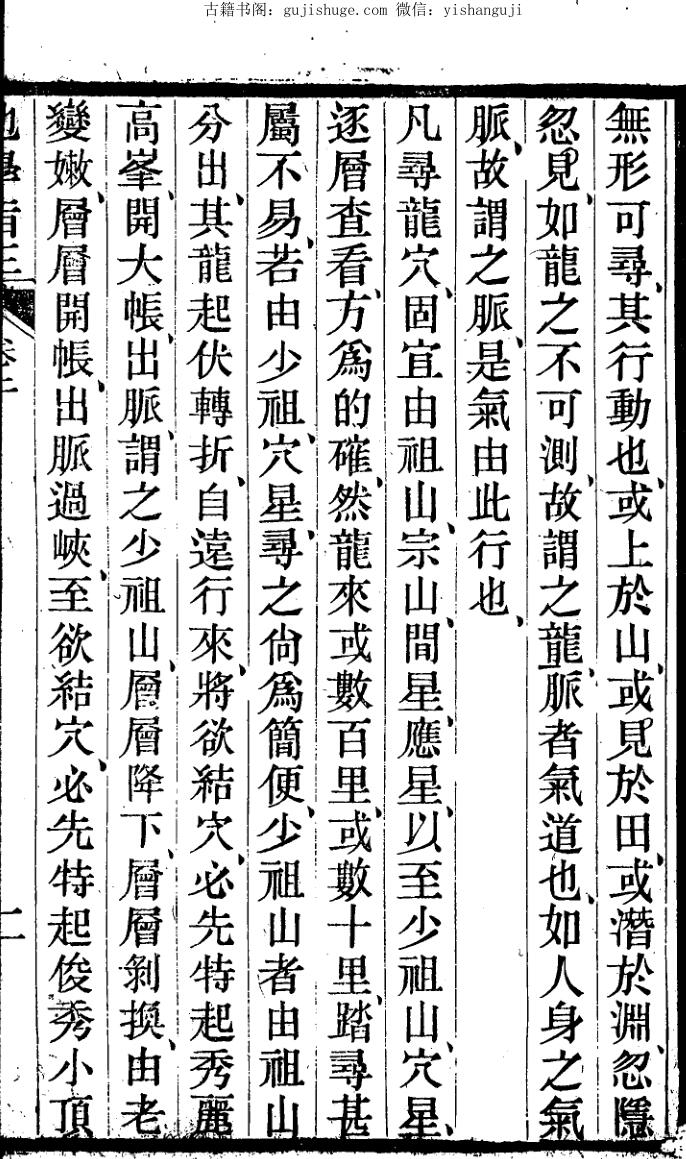 古籍书阁：gujishuge.com 微信：yishanguji
無形可尋、其行動也、或上於山、或見於田、或潛於淵、忽隱
忽見、如龍之不可測、故謂之龍、脈者氣道也、如人身之氣
脈、故謂之脈、是氣由此行也、
凡尋龍穴、固宜由祖山、宗山、間星、應星、以至少祖山、穴星、
逐層查看、方爲的確、然龍來或數百里、或數十里、踏尋甚
屬不易、若由少祖穴星尋之、尙爲簡便、少祖山者由祖山
分出、其龍起伏轉折、自遠行來、將欲結穴、必先特起秀麗
高峯、開大帳、出脈、謂之少祖山、層層降下、層層剝換、由老
變嫩、層層開帳、出脈過峽、至欲結穴、必先特起俊秀小頂
二